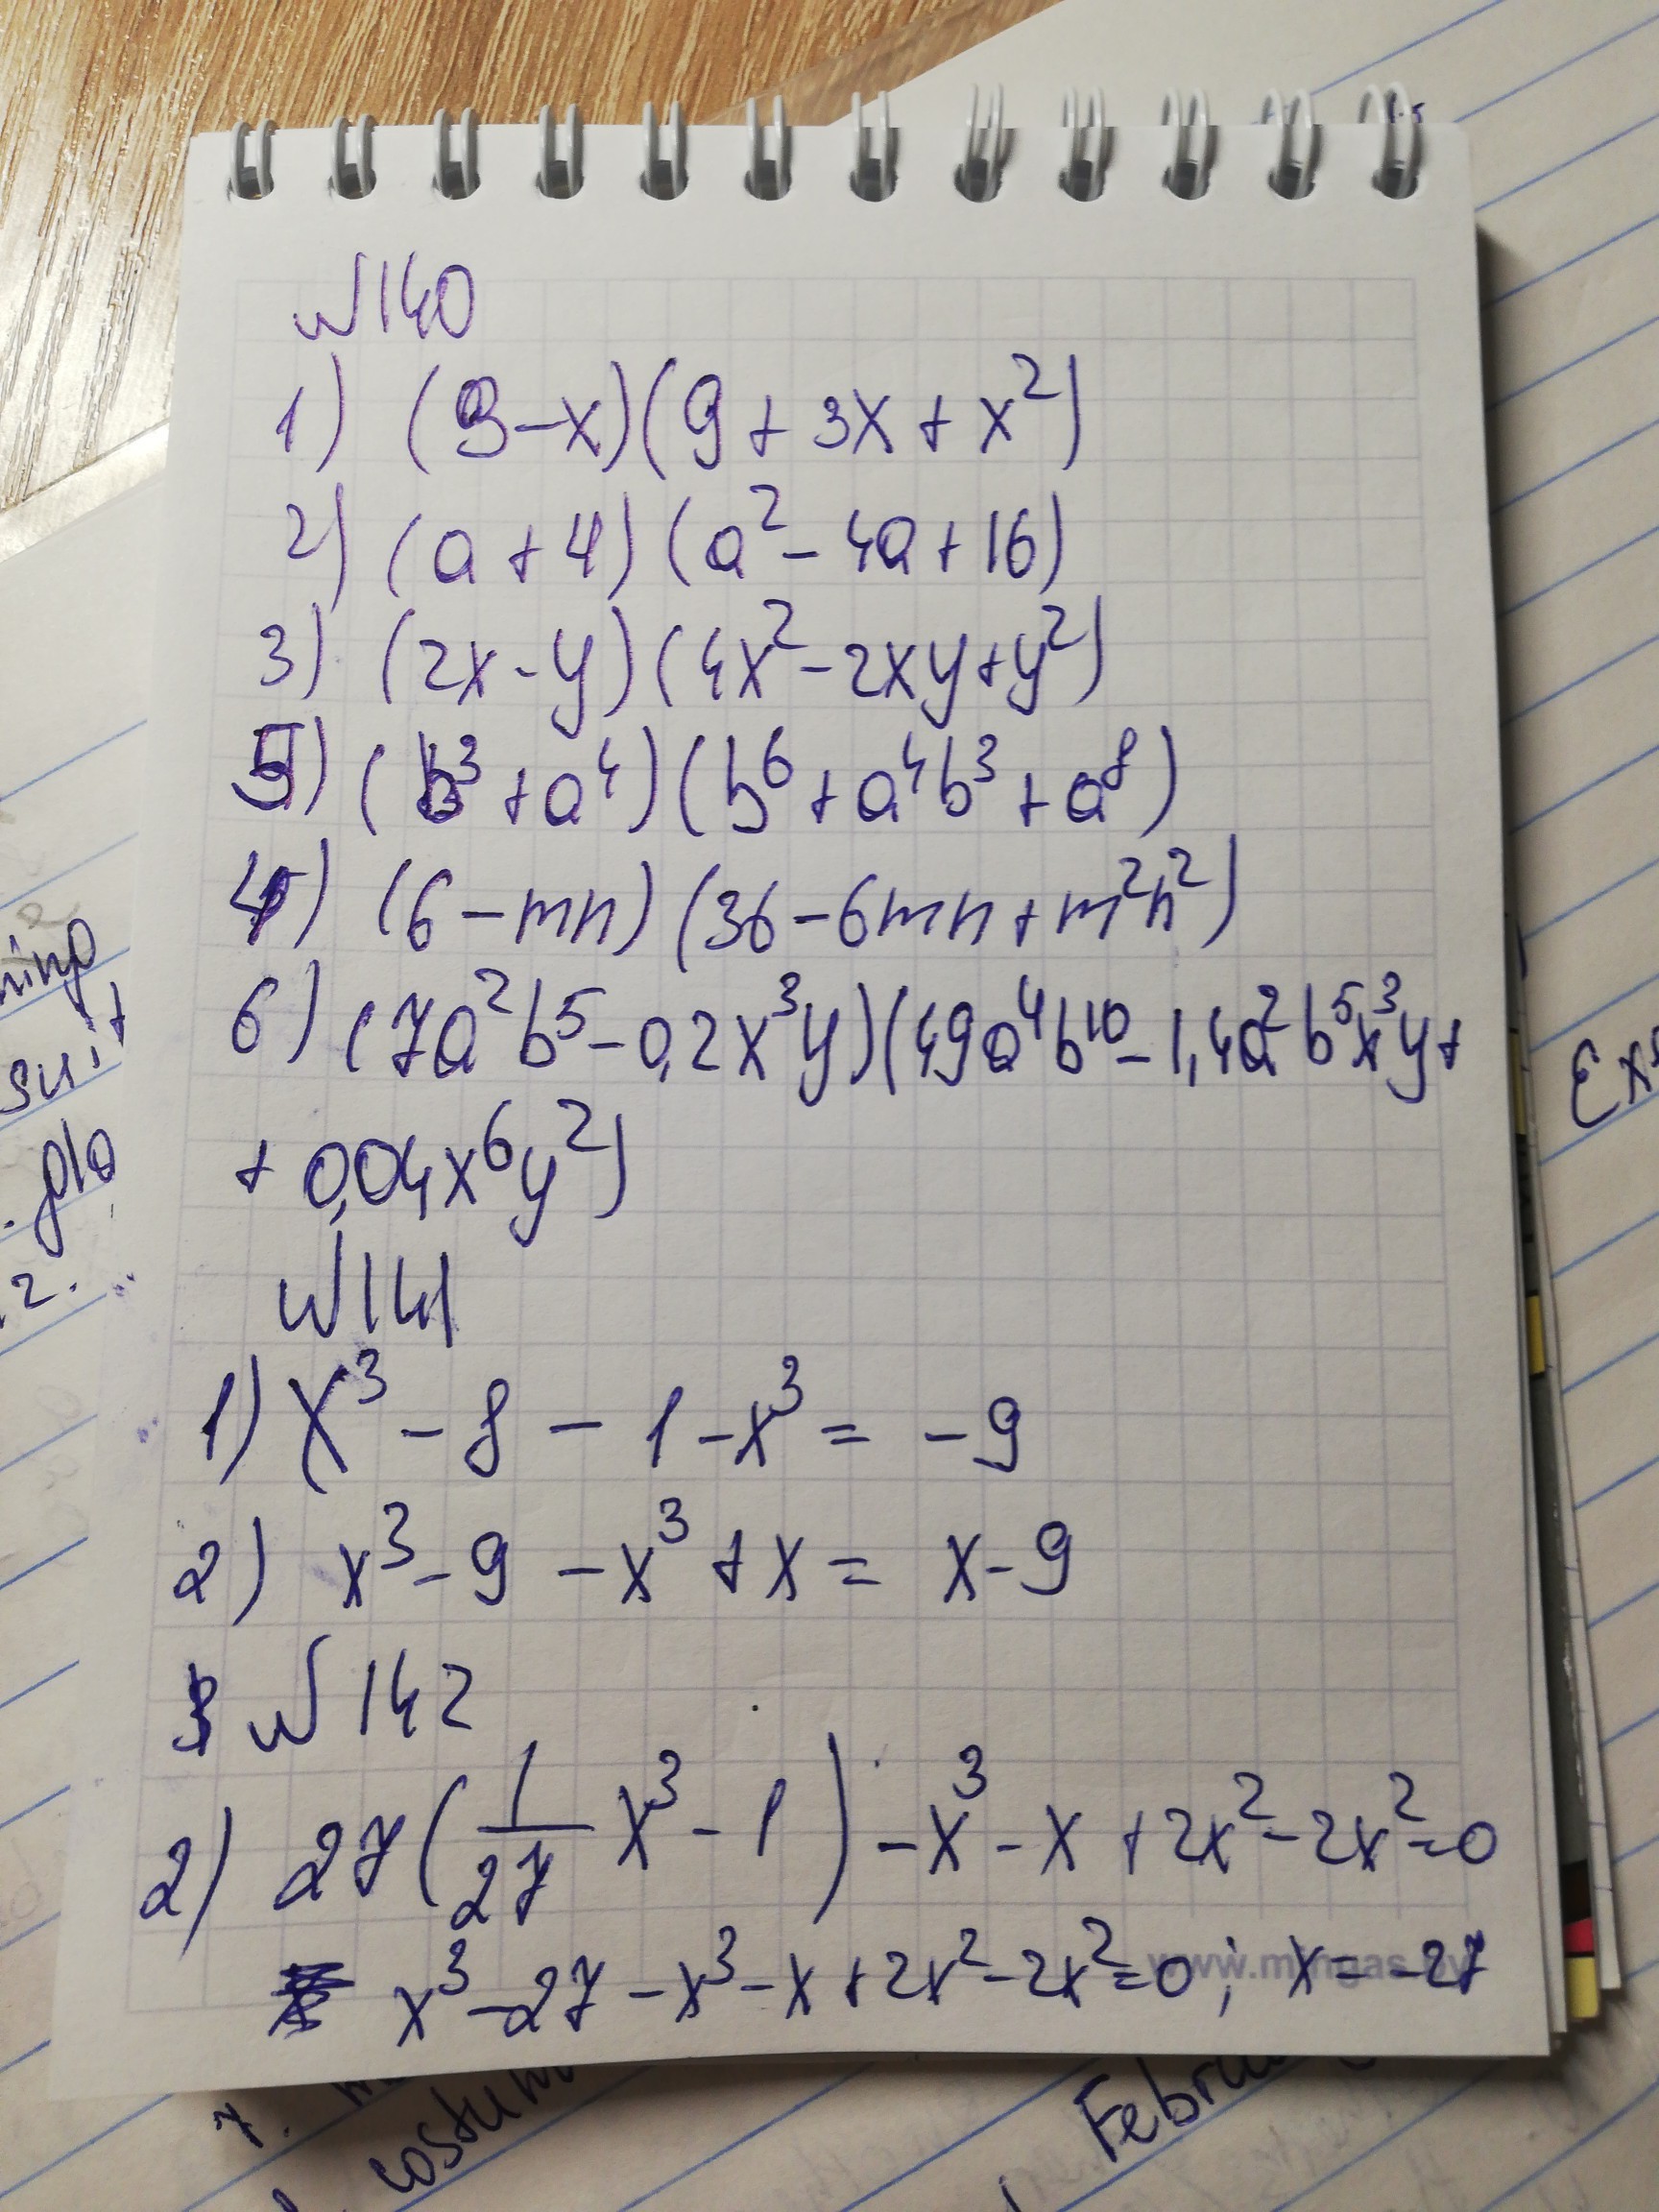 №140
1) (3-x)(9+3x+x²)
2) (a+4)(a²-4a+16)
3) (2x-y)(4x²-2xy+y²)
5) (b³+a⁴)(b⁶+a⁴b³+a⁸)
4) (6-mn)(36-6mn+m²n²)
6) (7a²b⁵-0,2x³y)(49a⁴b¹⁰-1,4a²b⁵x³y+
+0,04x⁶y²)
№141
1) x³-8-1-x³=-9
2) x³-9-x³+x=x-9
№142
2) 27(1/27 x³-1)-x³-x+2x²-2x²=0
x³-27-x³-x+2x²-2x²=0; x=-27
Ex
2.
7.
costum
Febru